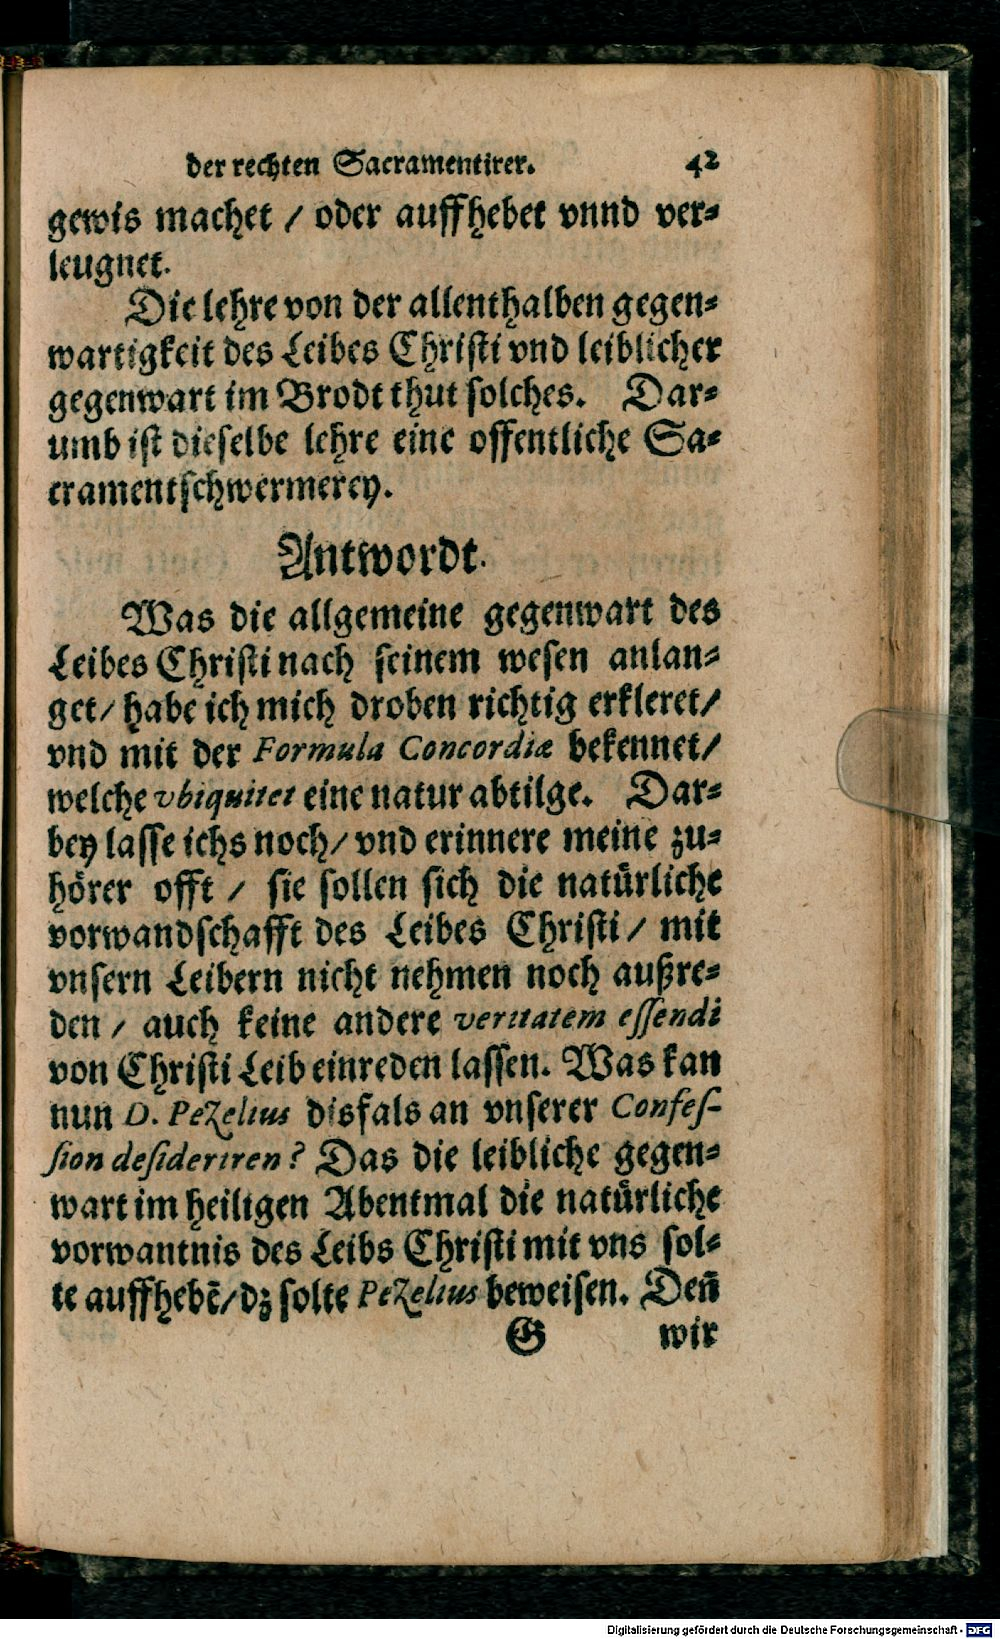 der rechten Sacramentirer. 42
gewis machet / oder auffhebet vnnd ver-
leugnet.
Die lehre von der allenthalben gegen-
wartigkeit des Leibes Christi vnd leiblicher
gegenwart im Brodt thut solches. Dar-
umb ist dieselbe lehre eine offentliche Sa-
cramentschwermerey.
Antwordt.
Was die allgemeine gegenwart des
Leibes Christi nach seinem wesen anlan-
get / habe ich mich droben richtig erkleret /
vnd mit der Formula Concordiæ bekennet /
welche vbiquitet eine natur abtilge. Dar-
bey lasse ichs noch / vnd erinnere meine zu-
hörer offt / sie sollen sich die natürliche
vorwandschafft des Leibes Christi / mit
vnsern Leibern nicht nehmen noch außre-
den / auch keine andere veritatem essendi
von Christi Leib einreden lassen. Was kan
nun D. Pezelius disfals an vnserer Confes-
sion desideriren? Das die leibliche gegen-
wart im heiligen Abentmal die natürliche
vorwantnis des Leibs Christi mit vns sol-
te auffhebē / dz solte Pezelius beweisen. Deñ
G wir
Digitalisierung gefördert durch die Deutsche Forschungsgemeinschaft - DFG